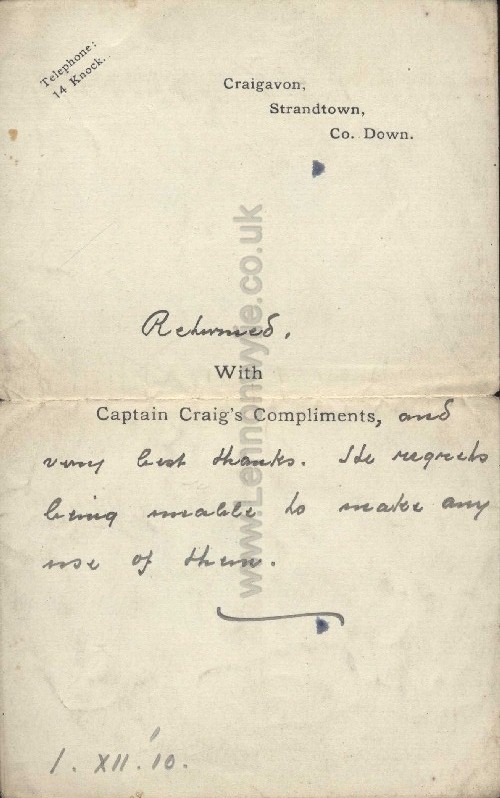 Telephone:
14 Knock.
Craigavon,
Strandtown,
Co. Down.
Returned,
With
Captain Craig's Compliments, and
very best thanks. He regrets
being unable to make any
use of them.
1. XII. '10.
www.Lennonwylie.co.uk